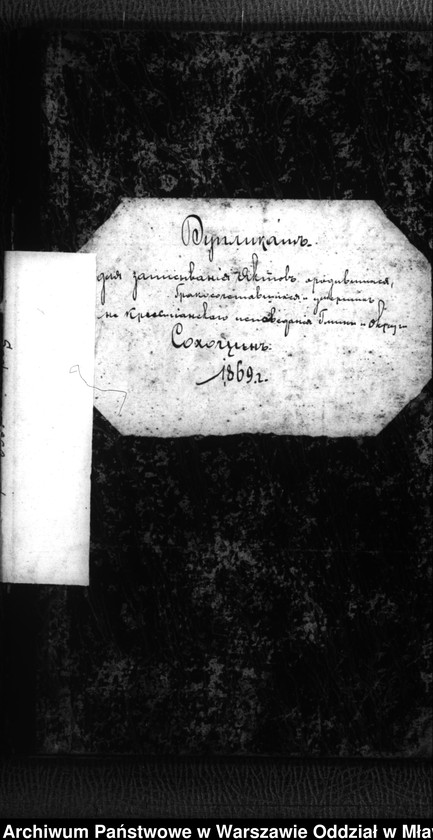 Дупликатъ
для записыванія Актовъ о родившихся,
бракосочетавшихся и умершихъ
не христіанскаго исповѣданія Гмины и Округа
Сохоцинъ
1869 г.
Archiwum Państwowe w Warszawie Oddział w Mła